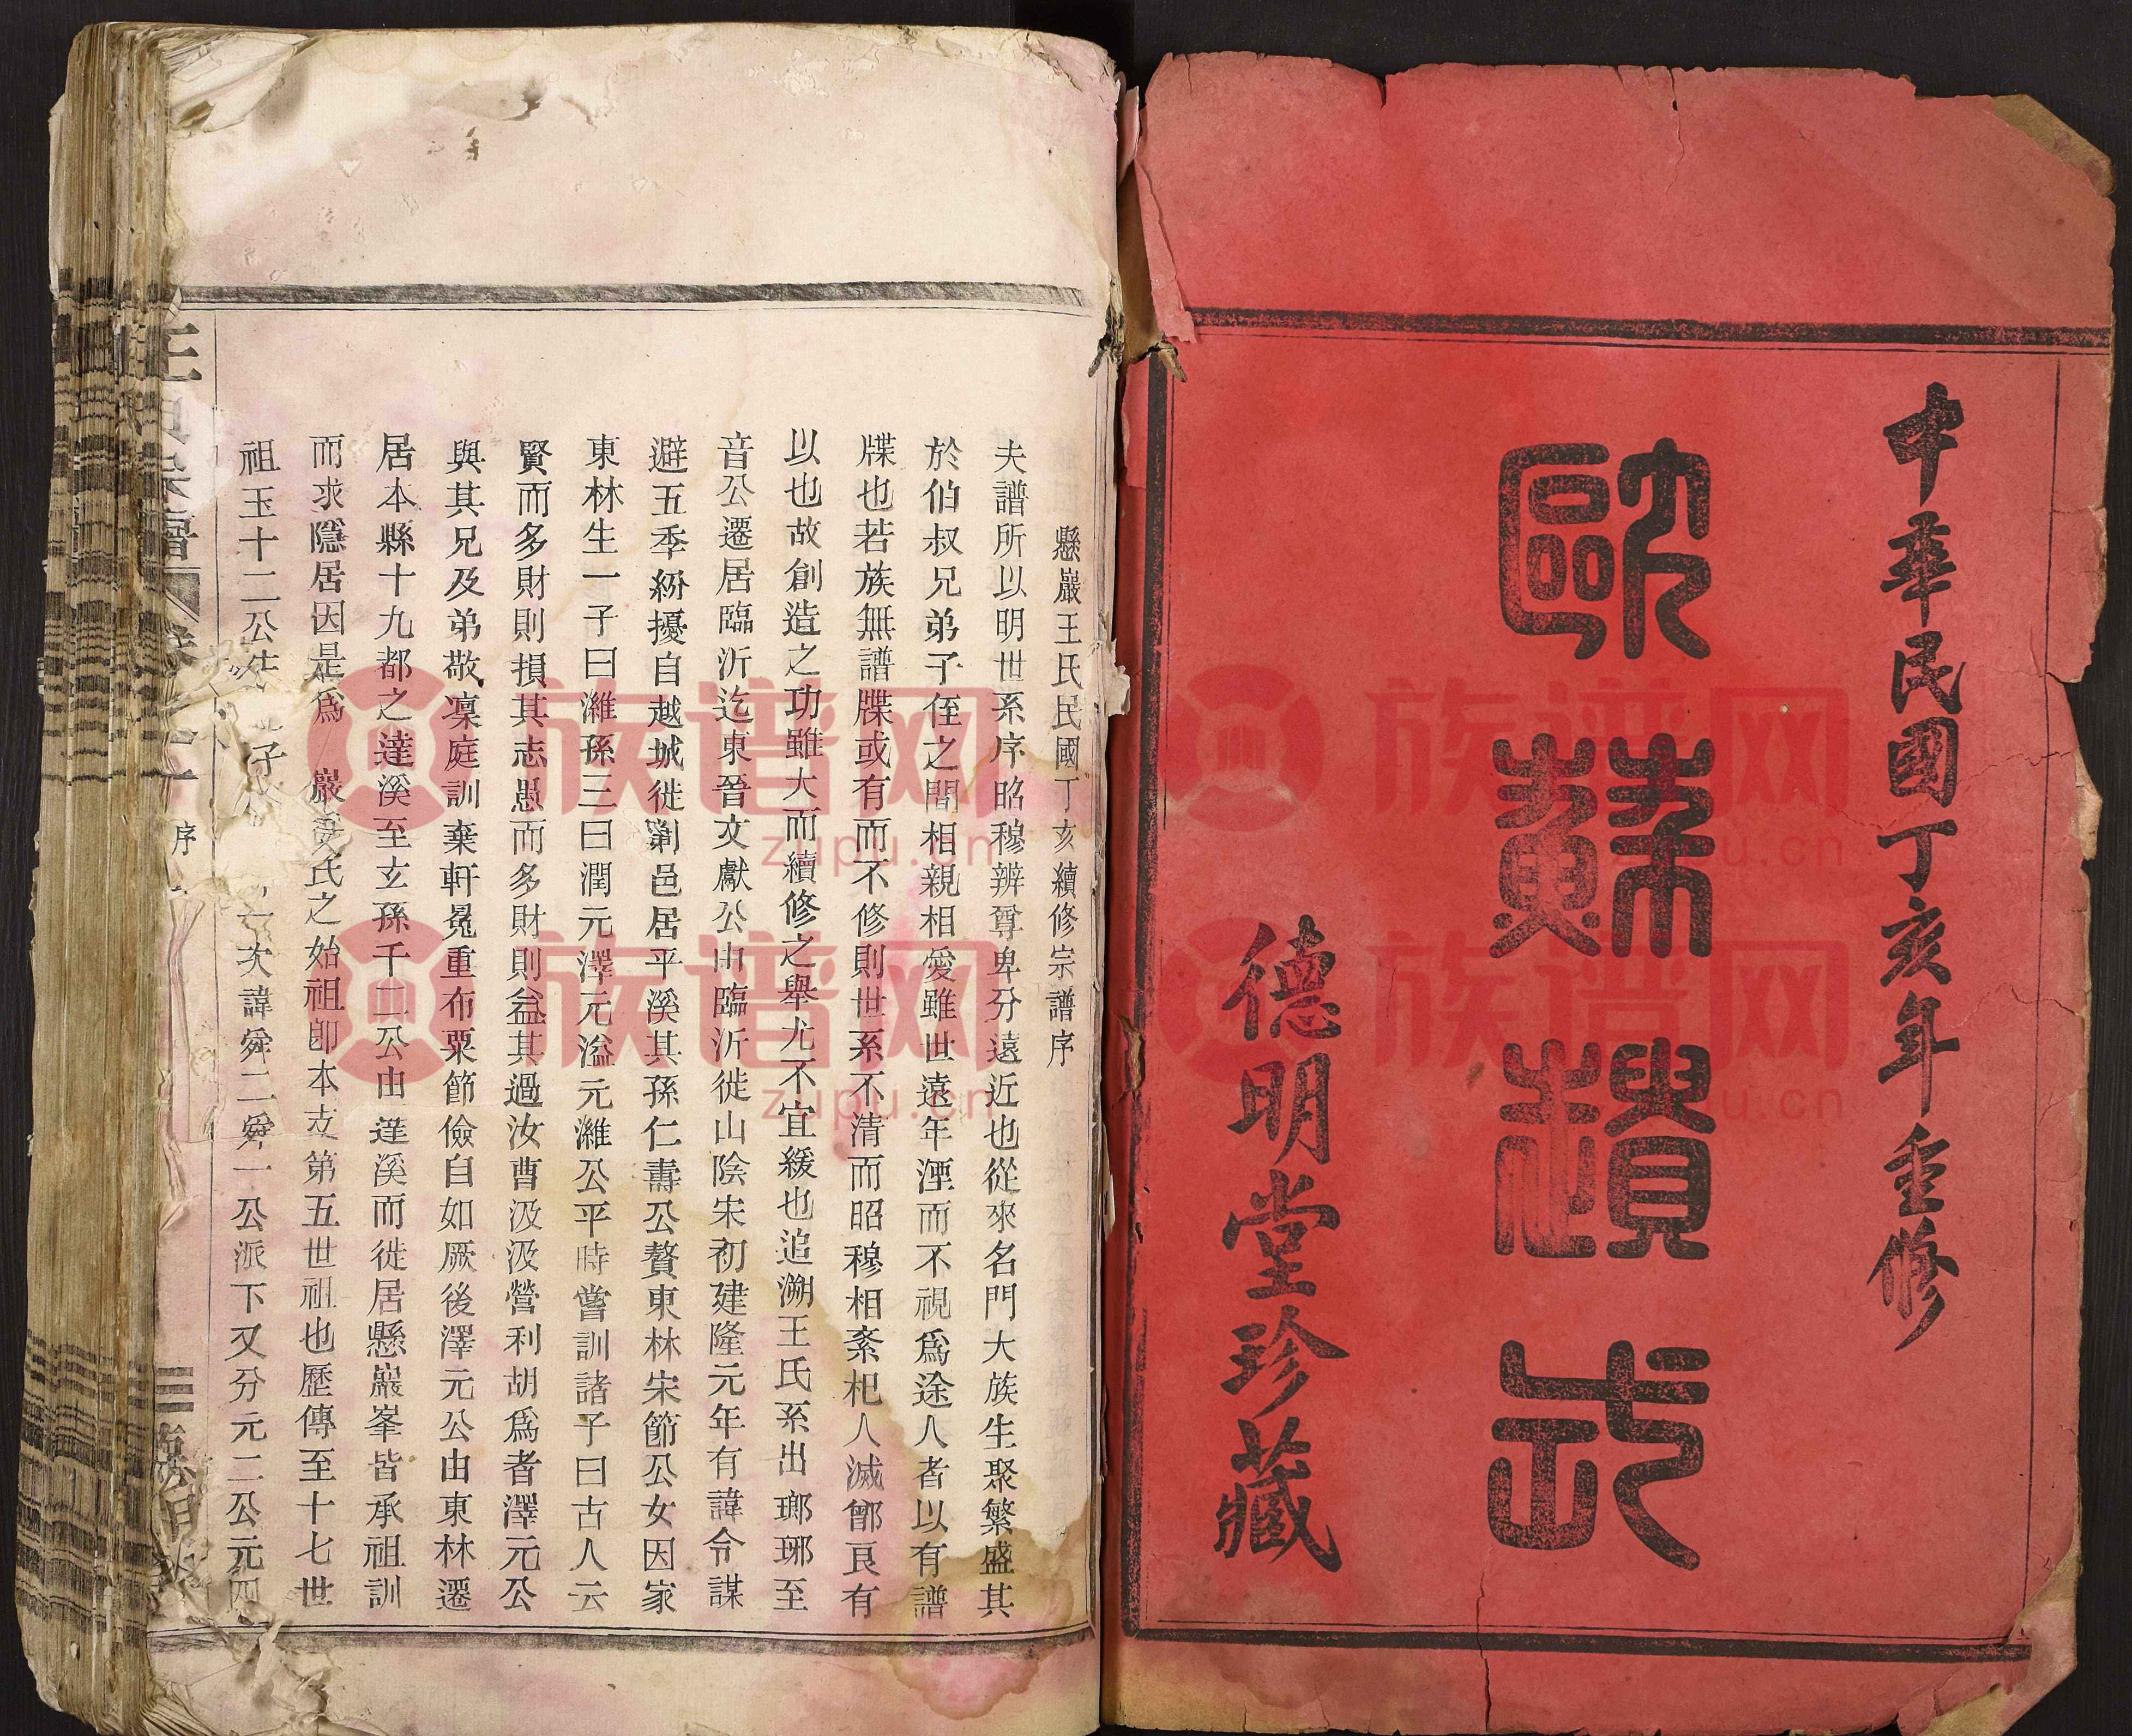 中華民國丁亥年重修
歐蘇積式
德明堂珍藏
懸巖王氏民國丁亥續修宗譜序
夫譜所以明世系序昭穆辨尊卑分遠近也從來名門大族生聚繁盛其
於伯叔兄弟子侄之間相親相愛雖世遠年湮而不視爲途人者以有譜
牒也若族無譜牒或有而不修則世系不清而昭穆相紊杞人滅鄫良有
以也故創造之功雖大而續修之舉尤不宜緩也追溯王氏系出瑯琊至
音公遷居臨沂迄東晉文獻公由臨沂徙山陰宋初建隆元年有諱令謀
避五季紛擾自越城徙剡邑居平溪其孫仁壽公贅東林宋節公女因家
東林生一子曰濰孫三曰潤元澤元溢元濰公平時嘗訓諸子曰古人云
賢而多財則損其志愚而多財則益其過汝曹汲汲營利胡爲者澤元公
與其兄及弟敬凜庭訓棄軒冕重布粟節儉自如厥後澤元公由東林遷
居本縣十九都之達溪至玄孫千二公由達溪而徙居懸巖峯皆承祖訓
而求隱居因是爲 巖 氏之始祖卽本支第五世祖也歷傳至十七世
祖玉十二公生 子 次諱舜二舜一公派下又分元二公元四
王 宗譜 卷之一 序 三
族谱网
zupu.cn
族谱网
zupu.cn
族谱网
zupu.cn
族谱网
zupu.cn